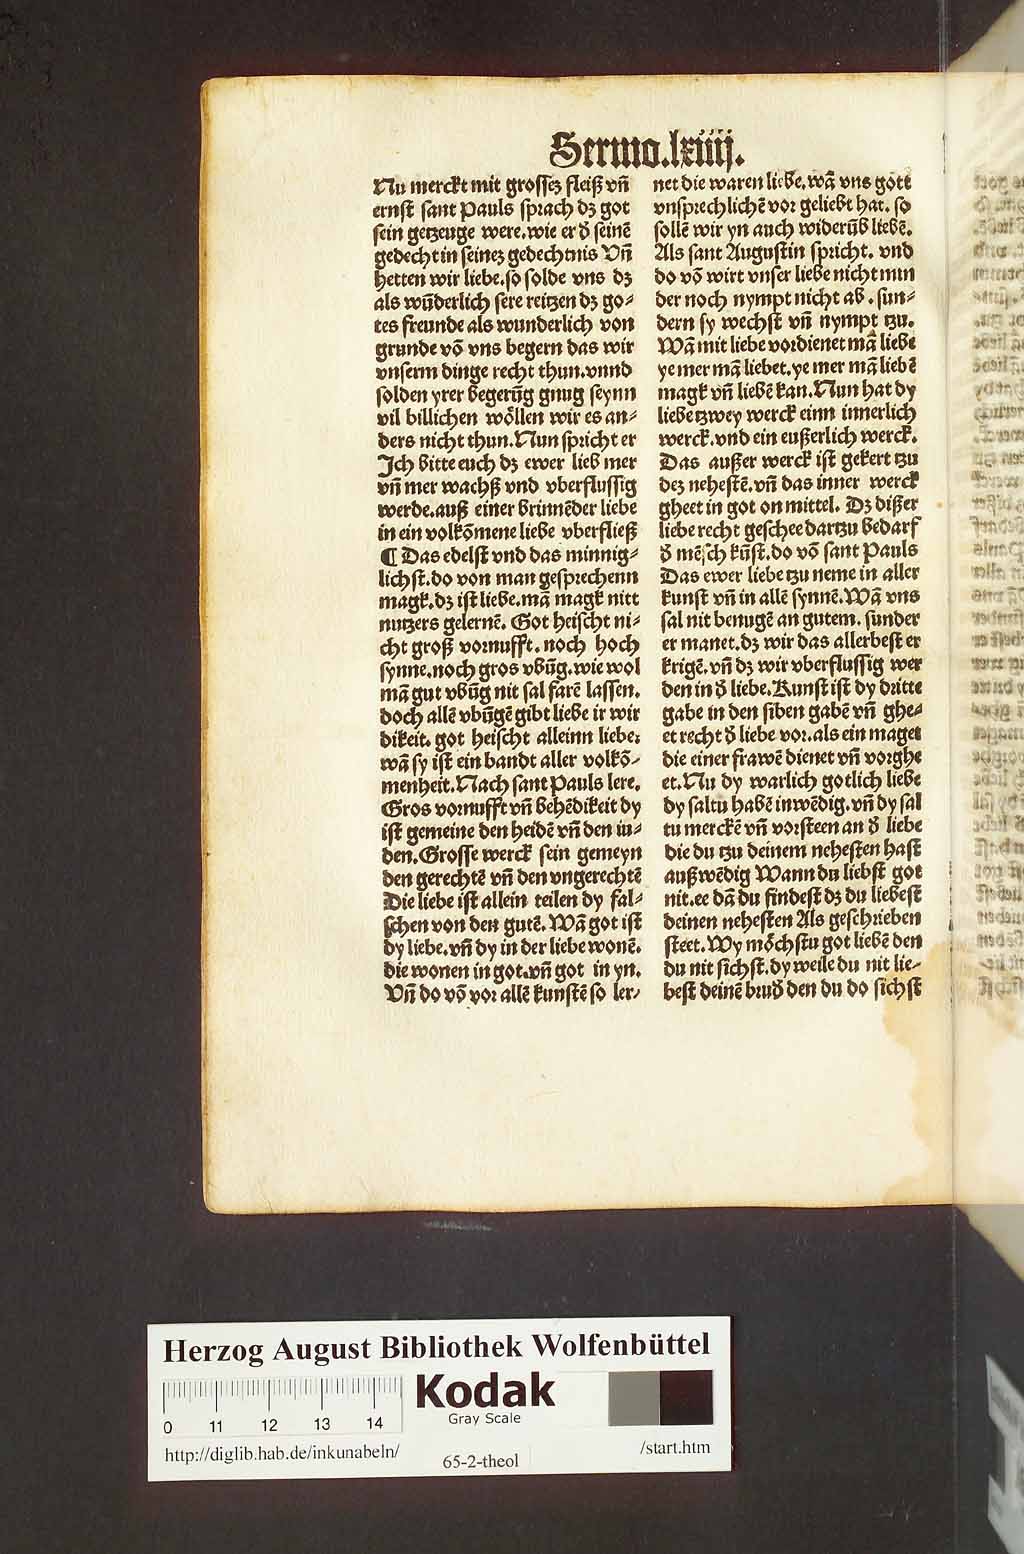 Sermo.lxiiij.
Nu merckt mit grossez fleiß vñ
ernst sant Pauls sprach dz got
sein getzeuge were.wie er d̕ seinē
gedecht in seinez gedechtnis Vñ
hetten wir liebe.so solde vns dz
als wūderlich sere reitzen dz go⸗
tes freunde als wunderlich von
grunde võ vns begern das wir
vnserm dinge recht thun.vnnd
solden yrer begerūg gnug seynn
vil billichen wőllen wir es an⸗
ders nicht thun.Nun spricht er
Ich bitte euch dz ewer lieb mer
vñ mer wachß vnd vberflussig
werde.auß einer brinnēder liebe
in ein volkōmene liebe vberfließ
¶ Das edelst vnd das minnig⸗
lichst.do von man gesprechenn
magk.dz ist liebe.mā magk nitt
nutzers gelernē. Got heischt ni⸗
cht groß vornufft.noch hoch
synne.noch gros vbūg.wie wol
mā gut vbūg nit sal farē lassen.
doch allē vbūgē gibt liebe ir wir
dikeit. got heischt alleinn liebe:
wā sy ist ein bandt aller volkō⸗
menheit.Nach sant Pauls lere.
Gros vornufft vñ behēdikeit dy
ist gemeine den heidē vñ den iu⸗
den.Grosse werck sein gemeyn
den gerechtē vñ den vngerechtē
Die liebe ist allein teilen dy fal⸗
schen von den gutē. Wā got ist
dy liebe.vñ dy in der liebe wonē.
die wonen in got.vñ got in yn.
Vñ do võ vor allē kunstē so ler⸗
net die waren liebe.wā vns gott
vnsprechlichē vor geliebt hat. so
sollē wir yn auch widerūb liebē.
Als sant Augustin spricht. vnd
do võ wirt vnser liebe nicht min
der noch nympt nicht ab. sun⸗
dern sy wechst vñ nympt tzu.
Wā mit liebe vordienet mā liebe
ye mer mā liebet.ye mer mā liebē
magk vñ liebē kan.Nun hat dy
liebe tzwey werck einn innerlich
werck.vnd ein eußerlich werck.
Das außer werck ist gekert tzu
dez nehestē.vñ das inner werck
gheet in got on mittel. Dz dißer
liebe recht geschee dartzu bedarf
d̕ mēsch kūst.do võ sant Pauls
Das ewer liebe tzu neme in aller
kunst vñ in allē synnē.Wā vns
sal nit benugē an gutem. sunder
er manet.dz wir das allerbest er
krigē.vñ dz wir vberflussig wer
den in d̕ liebe.Kunst ist dy dritte
gabe in den siben gabē vñ ghe⸗
et recht d̕ liebe vor.als ein maget
die einer frawē dienet vñ vorghe
et.Nu dy warlich gotlich liebe
dy saltu habē inwēdig.vñ dy sal
tu merckē vñ vorsteen an d̕ liebe
die du tzu deinem nehesten hast
außwēdig Wann du liebst got
nit.ee dā du findest dz du liebest
deinen nehesten Als geschrieben
steet.Wy mőchstu got liebē den
du nit sichst.dy weile du nit lie⸗
best deinē brud̕ den du do sichst
Herzog August Bibliothek Wolfenbüttel
Kodak
Gray Scale
0 11 12 13 14
http://diglib.hab.de/inkunabeln/
65-2-theol
/start.htm